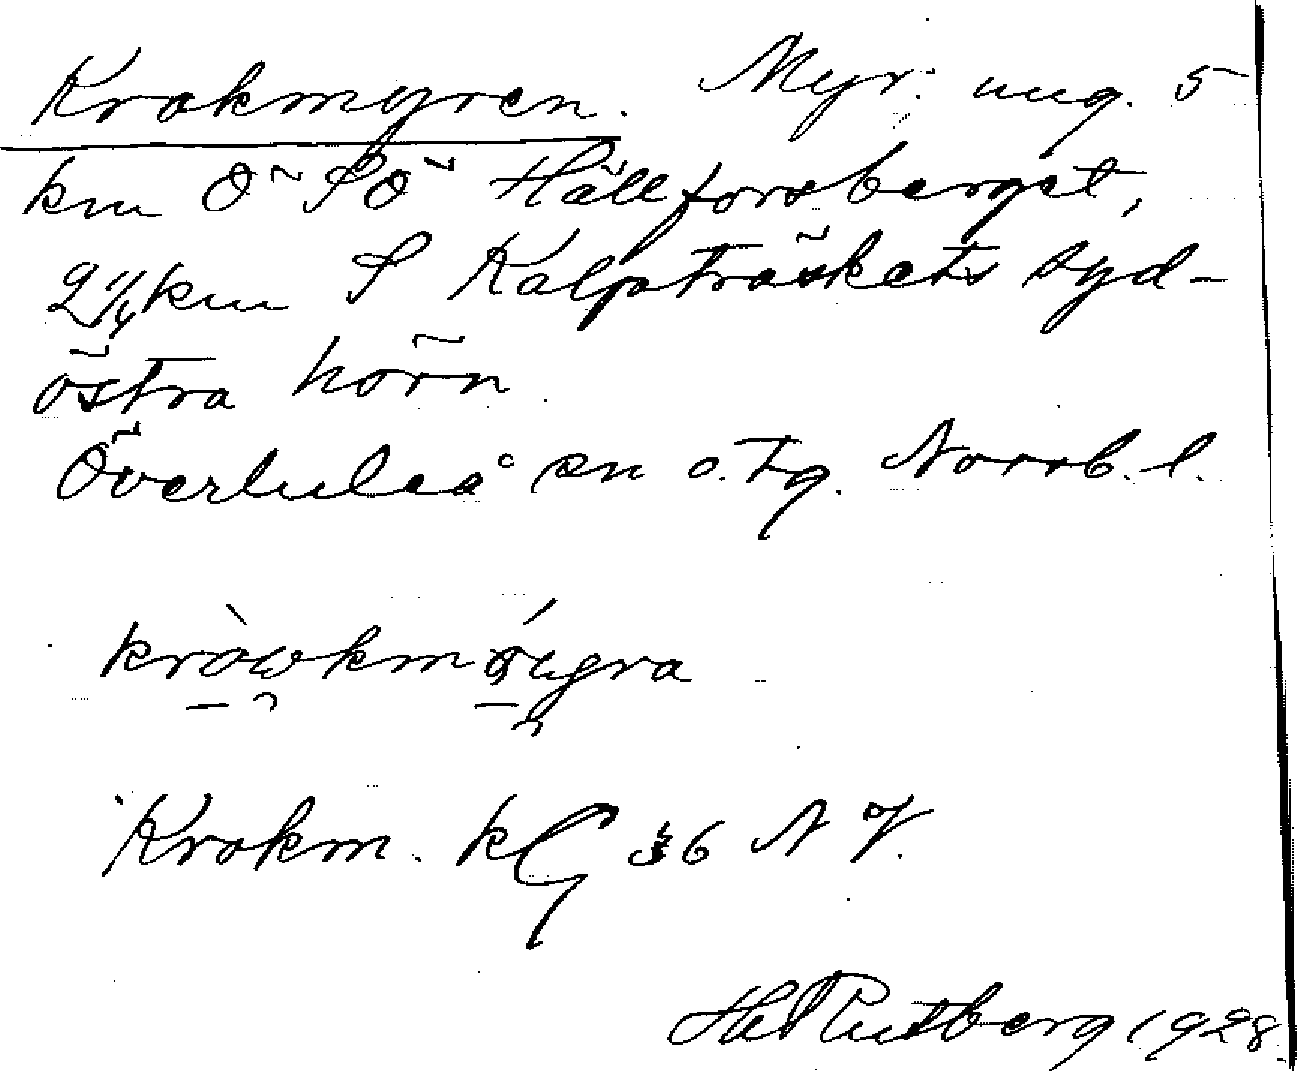 Krokmyren. Myr. ung. 5
km Ö SÖ Hällforsberget,
2 1/4 km S Kalpträskets syd-
östra hörn.
Överluleå sn o. tg. Norrb. l.
Krokm. kG 36 N V.
Rutberg 1928.